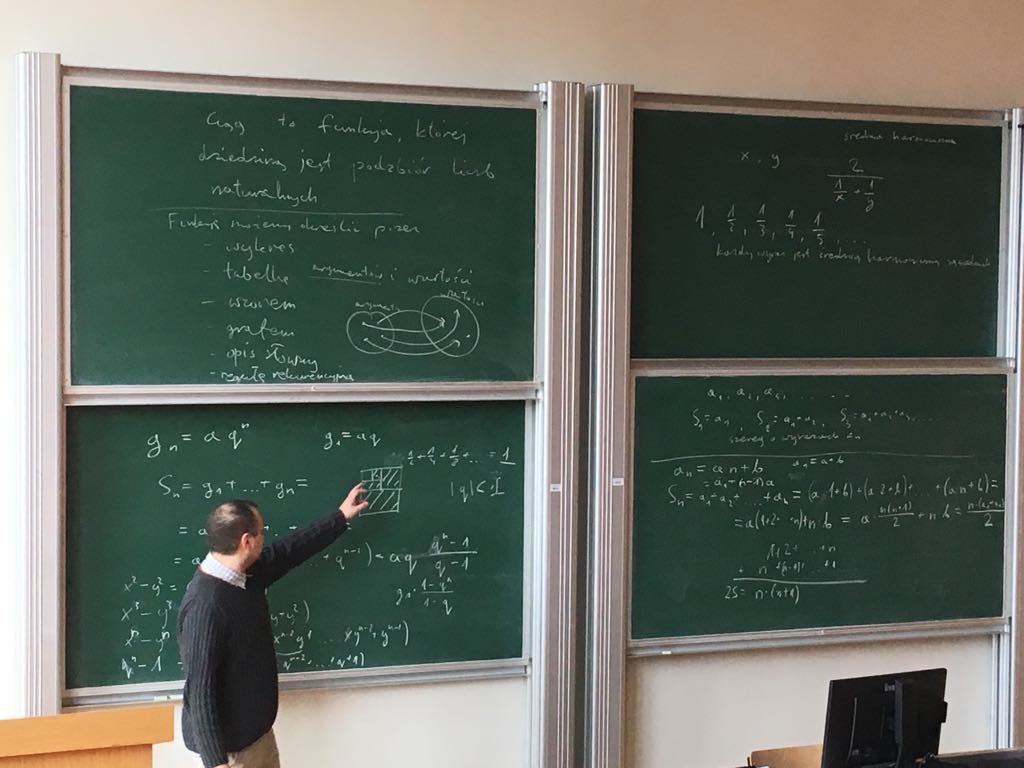 Ciąg to funkcja, której
dziedziną jest podzbiór liczb
naturalnych
Funkcję możemy określić przez
- wykres
- tabelkę argumentów i wartości
- wzorem
- grafem
argumenty wartości
- opis słowny
- regułę rekurencyjną
g_n = a q^n g_1 = aq
1/2 + 1/4 + 1/8 + ... = 1
S_n = g_1 + ... + g_n =
|q| < 1
= a
= a q^{n-1}) = aq (q^n - 1)/(q - 1)
g_1 · (1 - q^n)/(1 - q)
x² - y² =
x³ - y³ y²)
x^n - y^n x^{n-2}y^1 ... x y^{n-2} + y^{n-1})
q^n - 1 q^{n-2} ... + q + 1)
średnia harmoniczna
x, y 2/(1/x + 1/y)
1, 1/2, 1/3, 1/4, 1/5, ...
każdy wyraz jest średnią harmoniczną sąsiednich
a_1, a_2, a_3, ...
S_1 = a_1, S_2 = a_1 + a_2, S_3 = a_1 + a_2 + a_3, ...
szereg o wyrazach a_n
a_n = an + b a_1 = a + b
= a_1 + (n-1)a
S_n = a_1 + a_2 + ... + a_n = (a·1+b) + (a·2+b) + ... + (a n + b) =
= a(1+2+...+n) + n·b = a · n(n+1)/2 + n·b = n·(a_1+a_n)/2
1 + 2 + ... + n
+ n + (n-1) + ... + 1
2S = n·(n+1)